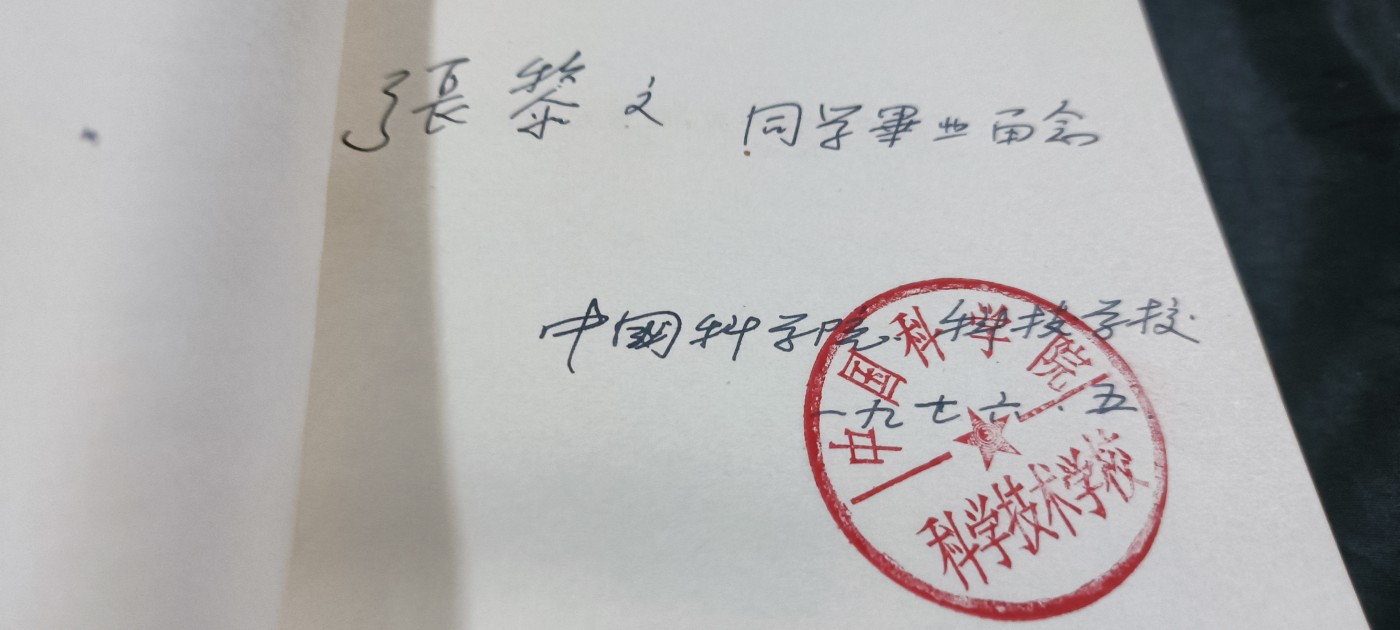 張黎文 同学畢业留念
中国科学院 科技学校
一九七六.五
中国科学院
科学技术学校